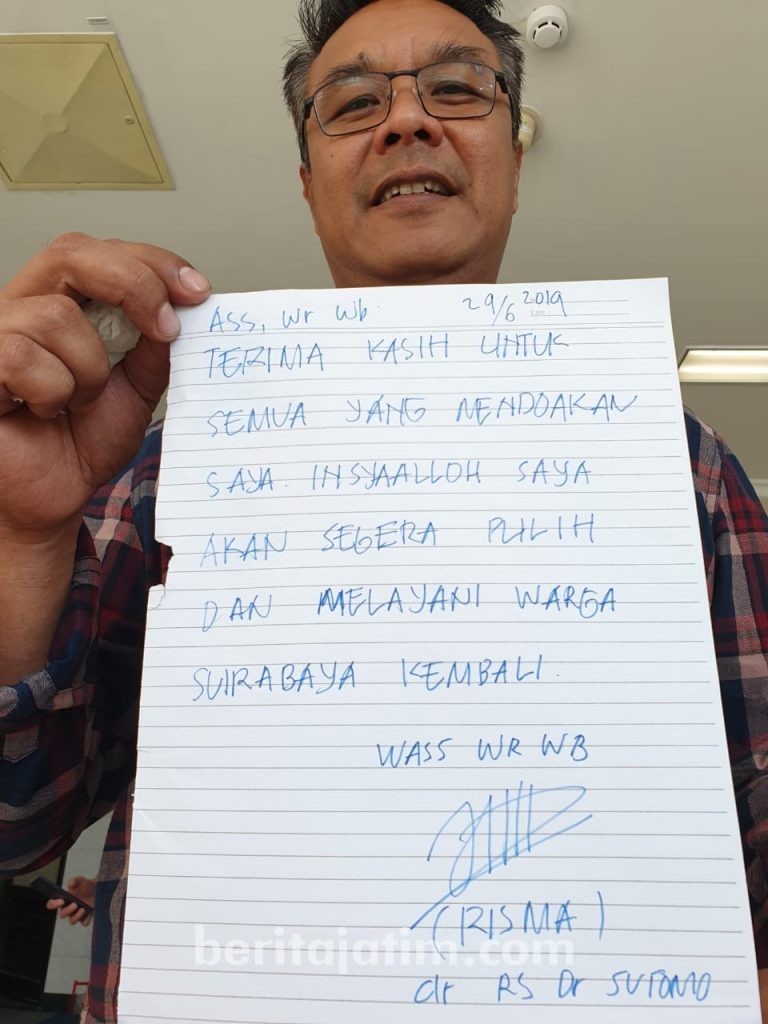 Ass, wr wb 29/6 2019
Date :
TERIMA KASIH UNTUK
SEMUA YANG MENDOAKAN
SAYA. INSYAALLOH SAYA
AKAN SEGERA PULIH
DAN MELAYANI WARGA
SURABAYA KEMBALI.
WASS WR WB
(RISMA)
beritajatim.com
dr RS Dr SUTOMO